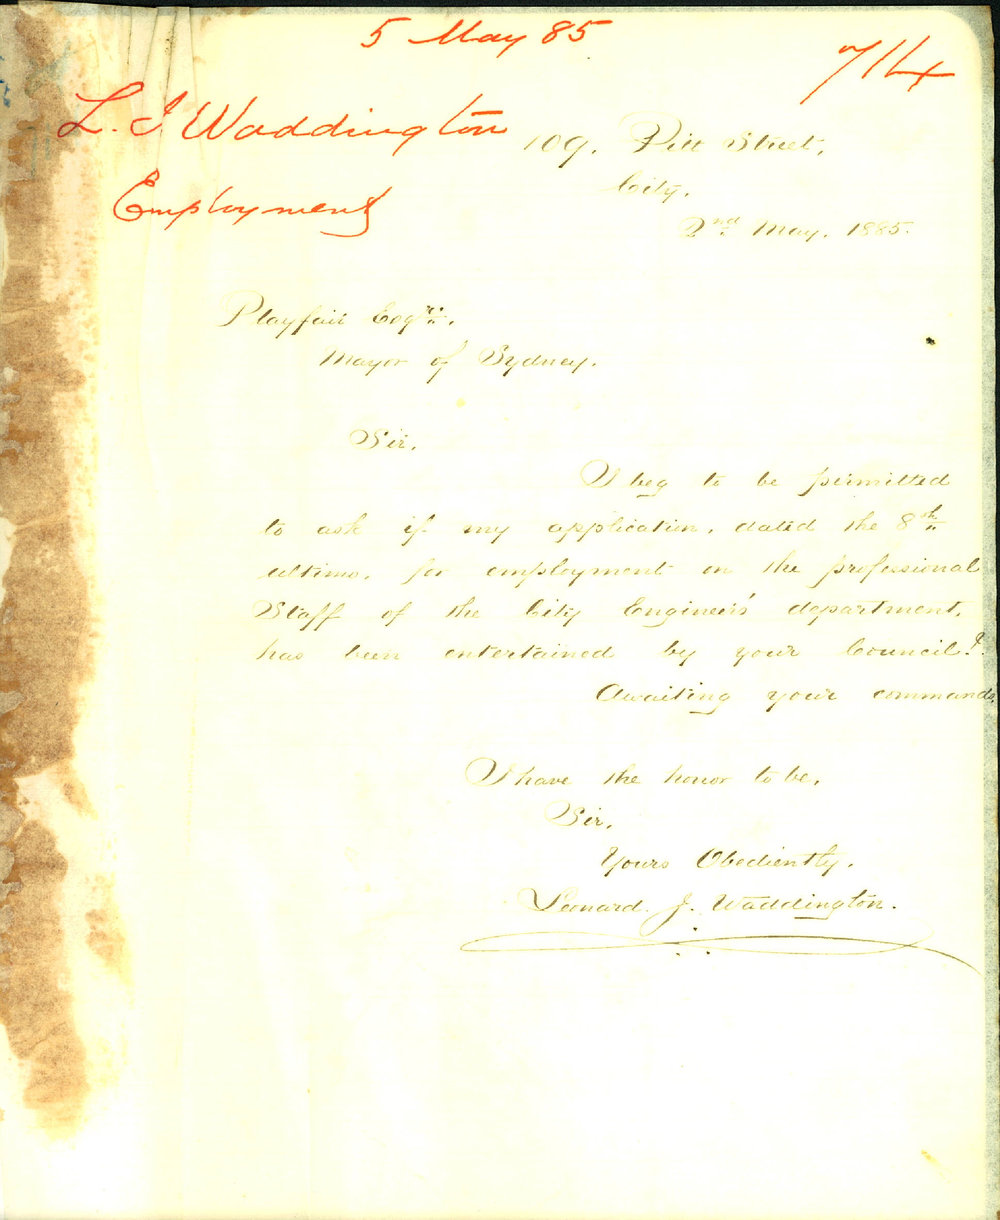 5 May 85
714
L. J Waddington
Employment
109, Pitt Street,
City,
2nd May, 1885.
Playfair Esqre.,
Mayor of Sydney.
Sir,
I beg to be permitted
to ask if my application, dated the 8th
ultimo, for employment on the professional
Staff of the City Engineer's department,
has been entertained by your Council?.
Awaiting your commands,
I have the honor to be,
Sir,
Yours Obediently,
Leonard J. Waddington.